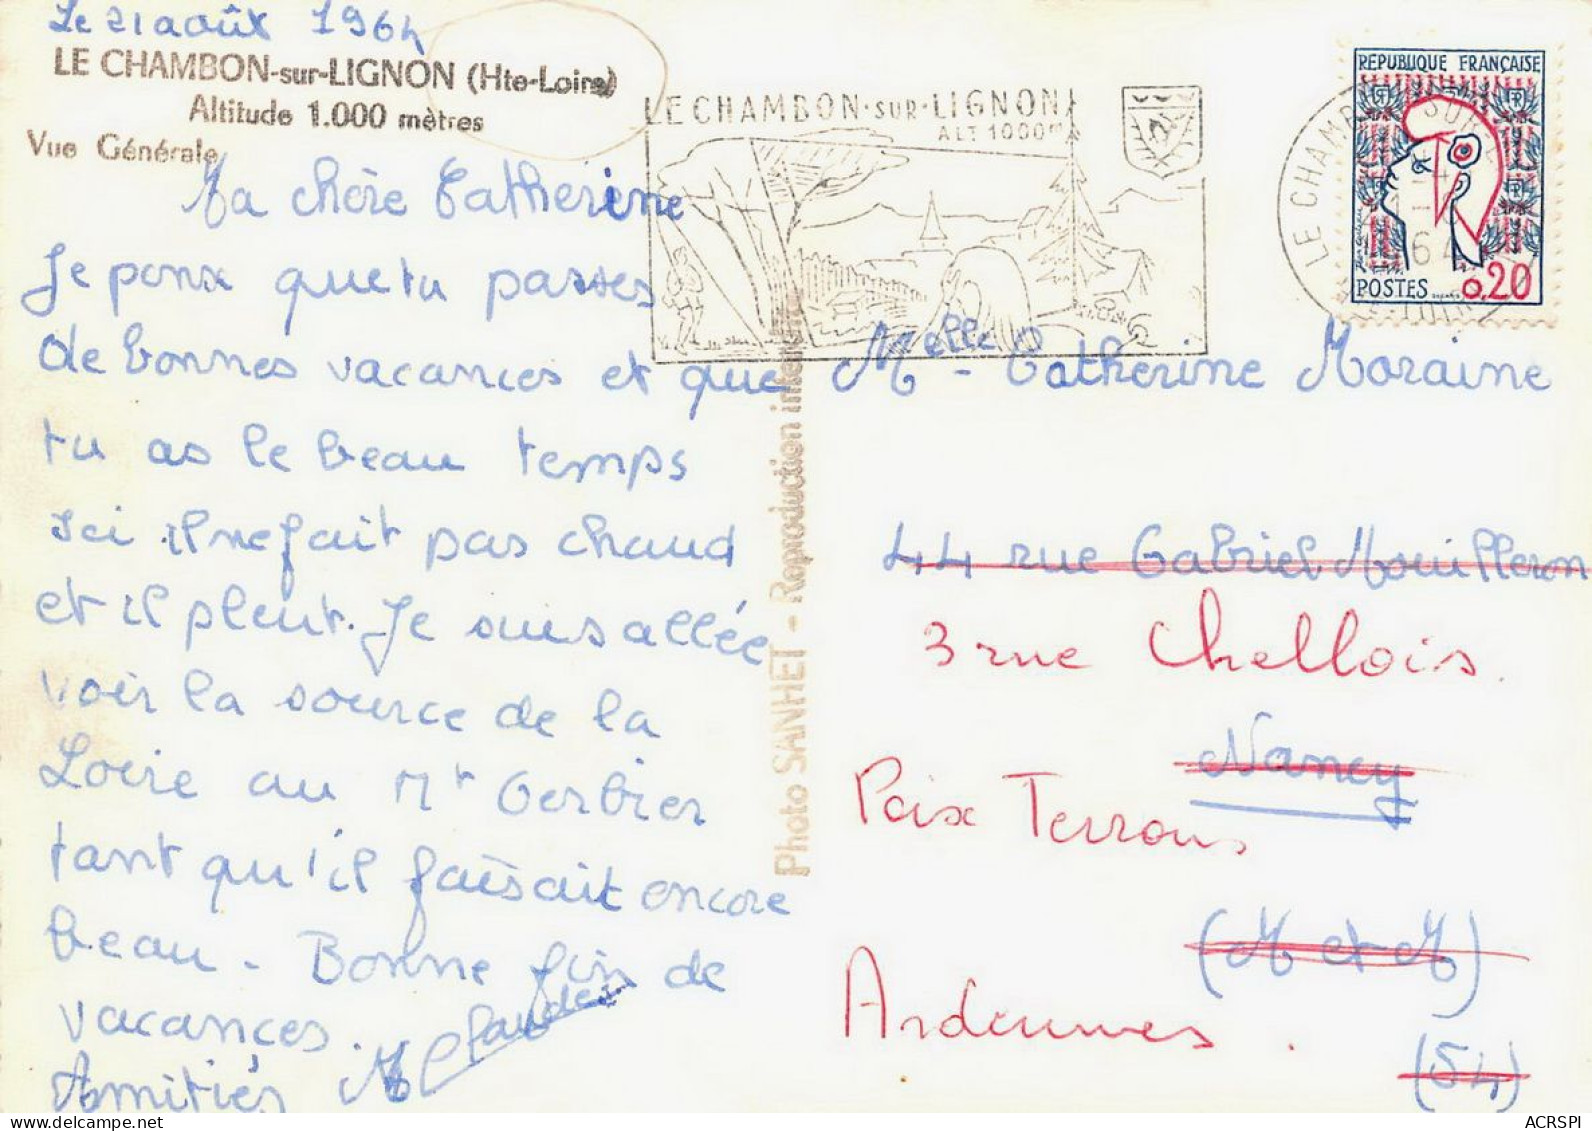 Le 21 août 1964
LE CHAMBON-sur-LIGNON (Hte-Loire)
Altitude 1.000 mètres
Vue Générale
Ma chère Catherine
Je pense que tu passes
de bonnes vacances et que
tu as le beau temps
Ici il ne fait pas chaud
et il pleut. Je suis allée
voir la source de la
Loire au Mt Gerbier
tant qu'il faisait encore
beau - Bonne fin de
vacances.
Amitiés M Claude
LE CHAMBON-SUR-LIGNON
ALT 1000m
LE CHAMBON SUR L
64
RÉPUBLIQUE FRANÇAISE
RF
RF
RF
RF
POSTES 0,20
Photo SANHET - Reproduction interdite
Melle - Catherine Moraine
44 rue Gabriel Mouilleron
3 rue Chellois.
Nancy
Poix Terrons
(M et M)
Ardennes.
(54)
ACRSPI